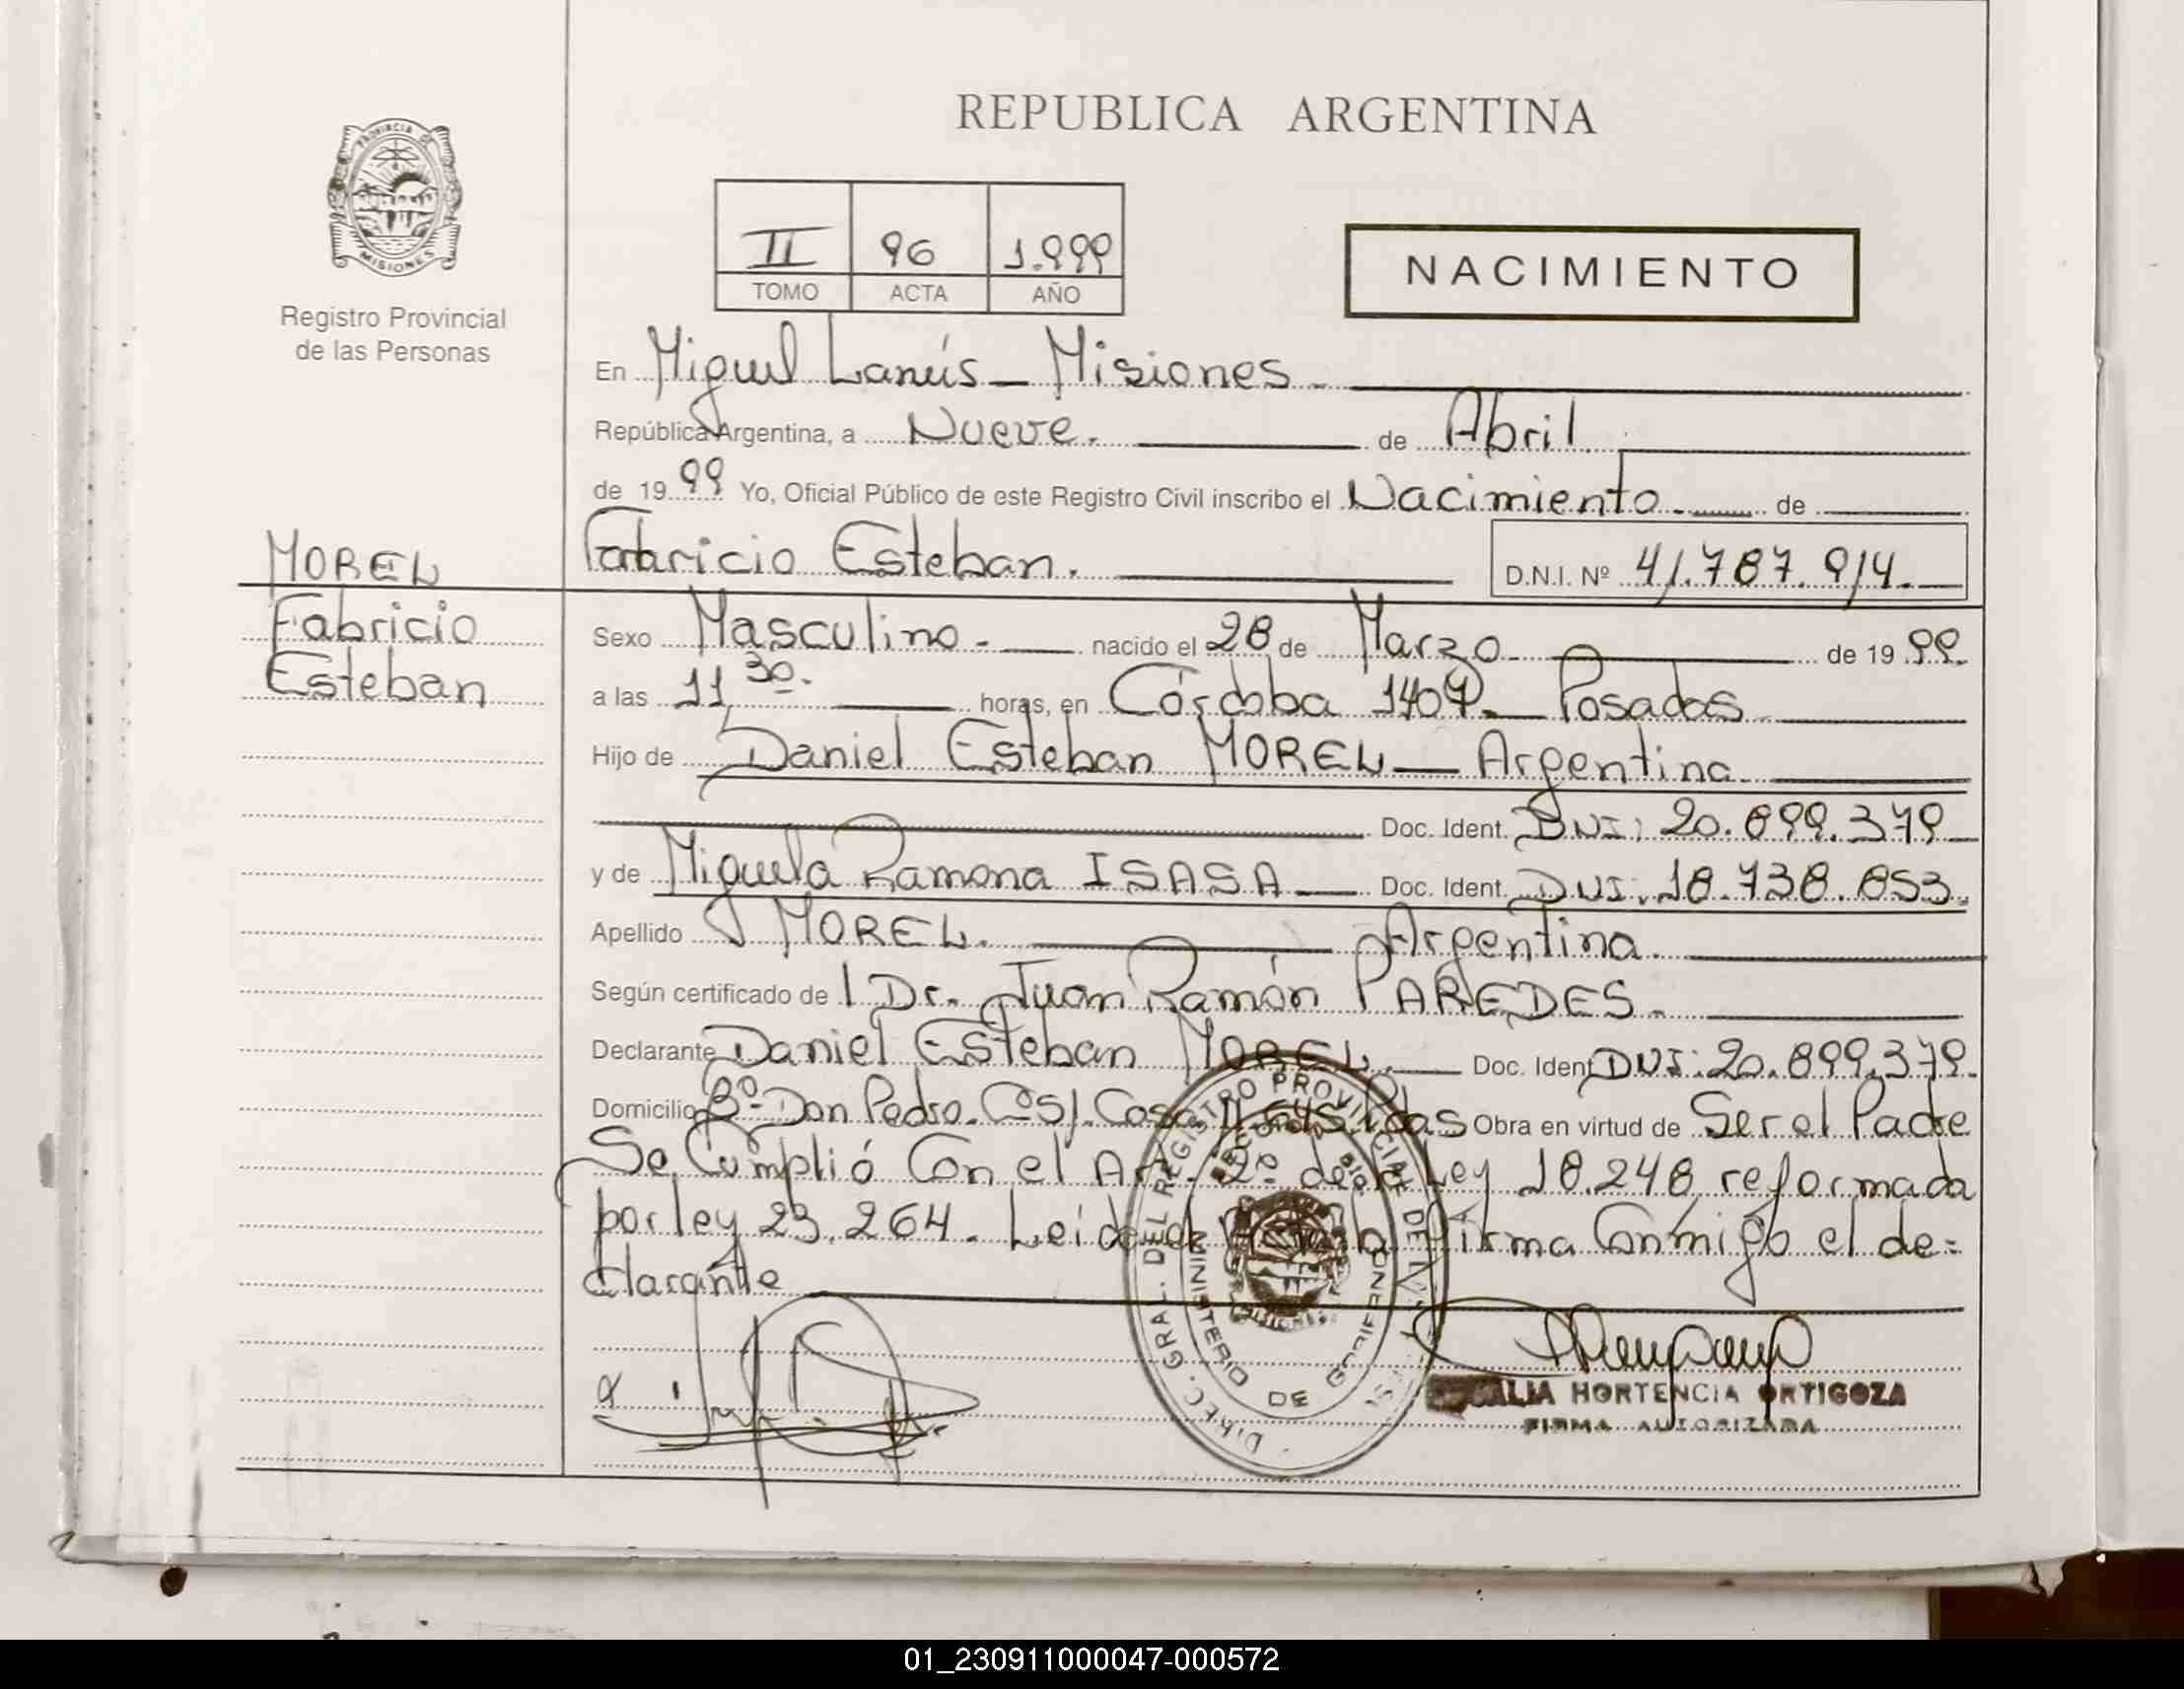 REPUBLICA ARGENTINA
PROVINCIA DE
MISIONES
Registro Provincial
de las Personas
II 96 1.999
TOMO ACTA AÑO
NACIMIENTO
En Miguel Lanús - Misiones.
República Argentina, a Nueve. de Abril
de 19 99 Yo, Oficial Público de este Registro Civil inscribo el Nacimiento de
Fabricio Esteban. D.N.I. Nº 41.787.914.
MOREL
Fabricio
Esteban
Sexo Masculino. nacido el 28 de Marzo de 19 99.
a las 11 30. horas, en Córdoba 1407. Posadas
Hijo de Daniel Esteban MOREL - Argentina
Doc. Ident. DNI: 20.899.379
y de Miguela Ramona ISASA Doc. Ident. DNI: 18.738.853.
Apellido MOREL. Argentina.
Según certificado de Dr. Juan Ramón PAREDES.
Declarante Daniel Esteban MOREL. Doc. Ident DNI: 20.899.379.
Domicilio Bº Don Pedro. Casa Pdas Obra en virtud de Ser el Padre
Se Cumplió Con el Art. 2º de la Ley 18.248 reformada
por ley 23.264. Leida el Acta la Firma Conmigo el de=
clarante
DIREC. GRAL. DEL REGISTRO PROVINCIAL DE
MINISTERIO DE GOBIERNO
ALIA HORTENCIA ORTIGOZA
FIRMA AUTORIZADA
01_230911000047-000572